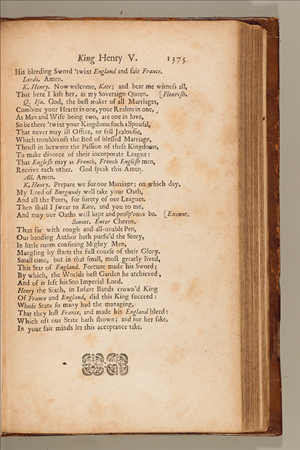 King Henry V. 1375
His bleeding Sword 'twixt England and fair France.
Lords. Amen.
K. Henry. Now welcome, Kate; and bear me witness all,
That here I kiss her, as my Soveraign Queen. [Flourish.
Q. Isa. God, the best maker of all Marriages,
Combine your Hearts in one, your Realms in one,
As Man and Wife being two, are one in love,
So be there 'twixt your Kingdoms such a Spousal,
That never may ill Office, or fell Jealousie,
Which troubles oft the Bed of blessed Marriage,
Thrust in between the Passion of these Kingdoms,
To make divorce of their incorporate League:
That English may as French, French English men,
Receive each other. God speak this Amen.
All. Amen.
K. Henry. Prepare we for our Marriage; on which day,
My Lord of Burgundy we'll take your Oath,
And all the Peers, for surety of our Leagues.
Then shall I swear to Kate, and you to me,
And may our Oaths well kept and prosp'rous be. [Exeunt.
Sonnet. Enter Chorus.
Thus far with rough and all-unable Pen,
Our bending Author hath pursu'd the Story,
In little room confining Mighty Men,
Mangling by starts the full course of their Glory.
Small time, but in that small, most greatly lived,
This Star of England, Fortune made his Sword;
By which, the Worlds best Garden he atchieved,
And of it left his Son Imperial Lord.
Henry the Sixth, in Infant Bands crown'd King
Of France and England, did this King succeed:
Whose State so many had the managing,
That they lost France, and made his England bleed:
Which oft our State hath shown; and for her sake,
In your fair minds let this acceptance take.